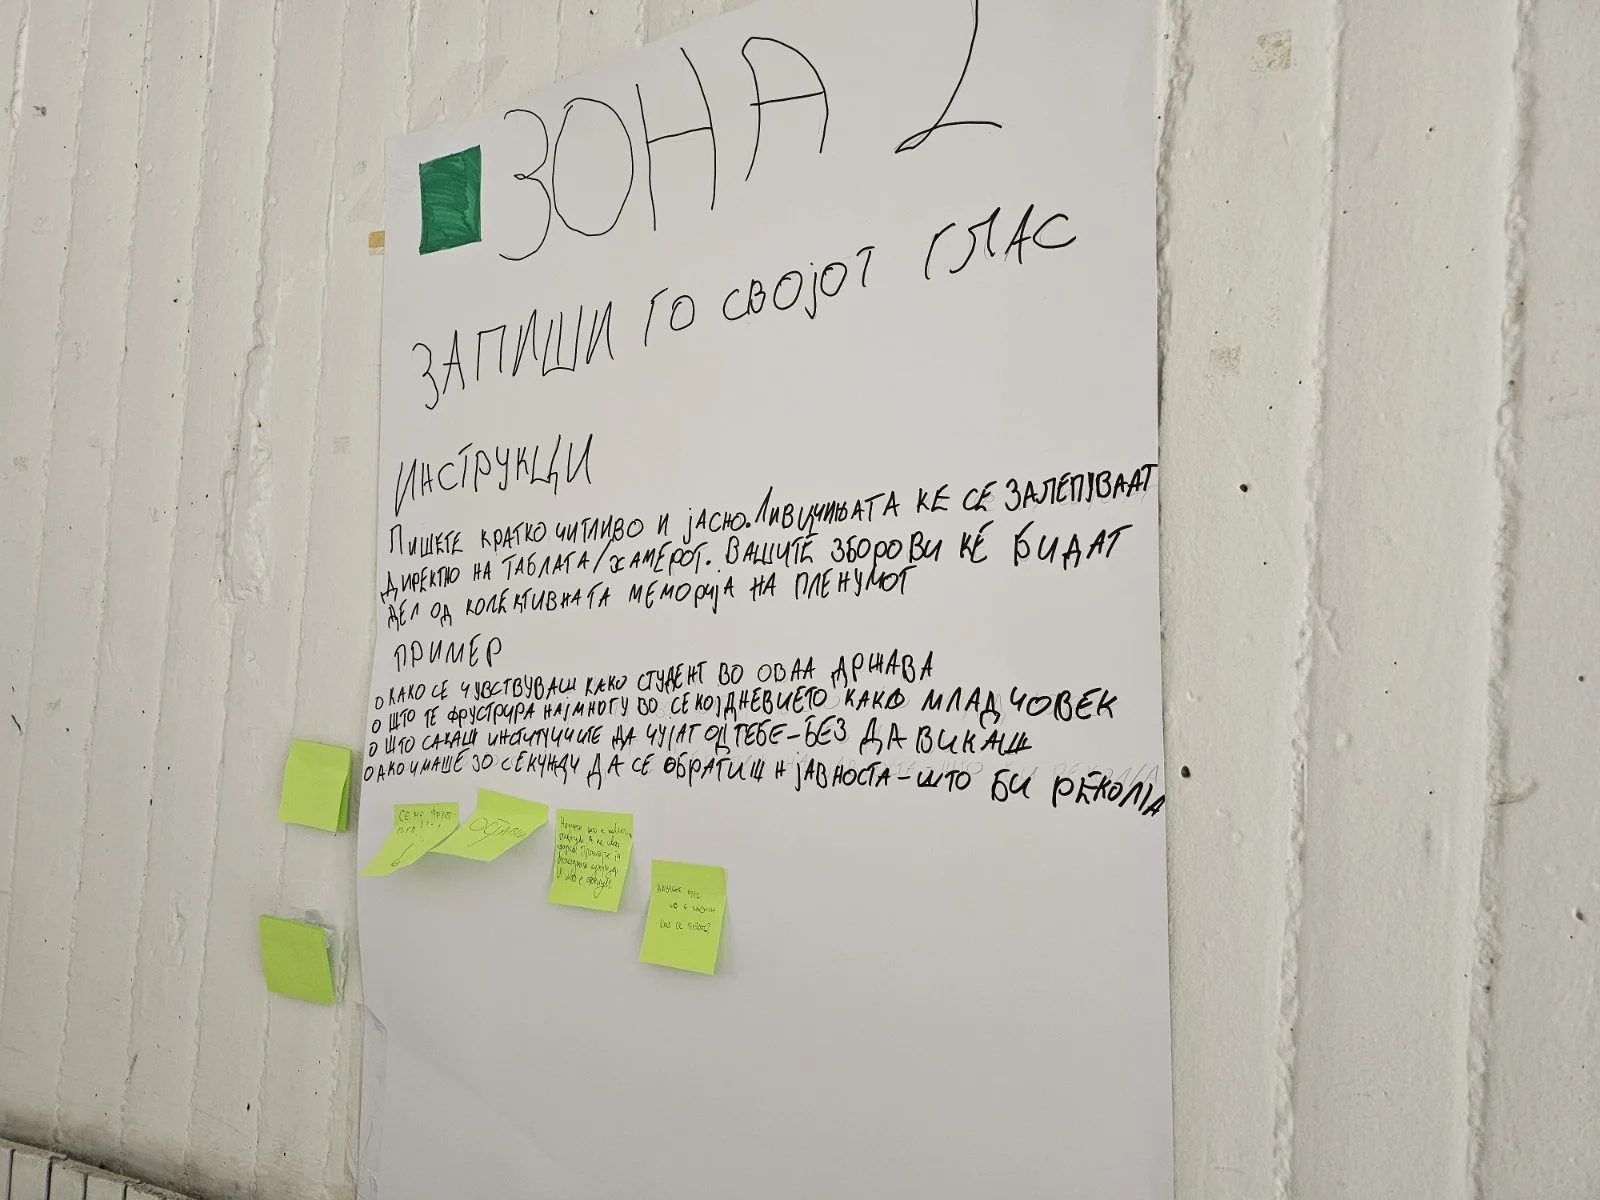 ЗОНА 2
ЗАПИШИ ГО СВОЈОТ ГЛАС
ИНСТРУКЦИ
ПИШЕТЕ КРАТКО ЧИТЛИВО И ЈАСНО. ЛИВЧИЊАТА КЕ СЕ ЗАЛЕПУВААТ
ДИРЕКТНО НА ТАБЛАТА/ХАМЕРОТ. ВАШИТЕ ЗБОРОВИ ЌЕ БИДАТ
ДЕЛ ОД КОЛЕКТИВНАТА МЕМОРИЈА НА ПЛЕНУМОТ
ПРИМЕР
О КАКО СЕ ЧУВСТВУВАШ КАКО СТУДЕНТ ВО ОВАА ДРЖАВА
О ШТО ТЕ ФРУСТРИРА НАЈМНОГУ ВО СЕКОЈДНЕВИЕТО КАКО МЛАД ЧОВЕК
О ШТО САКАШ ИНСТИТУЦИИТЕ ДА ЧУЈАТ ОД ТЕБЕ-БЕЗ ДА ВИКАШ
О АКО ИМАШЕ 30 СЕКУНДИ ДА СЕ ОБРАТИШ Н ЈАВНОСТА-ШТО БИ РЕКОЛ/А